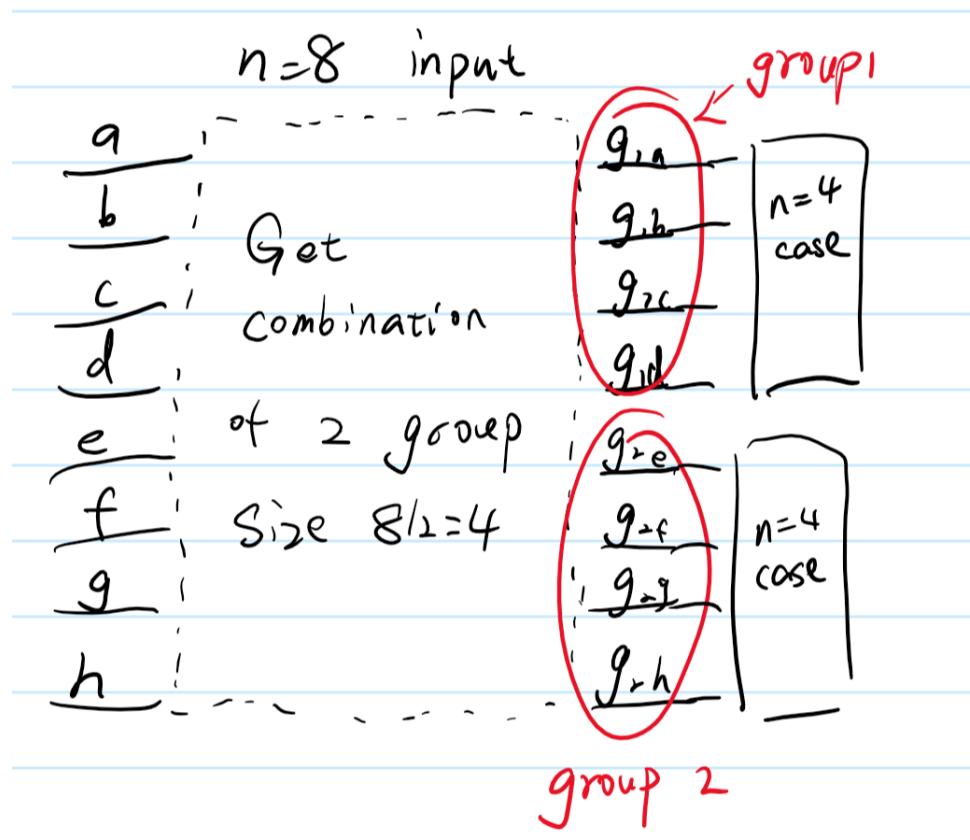 n=8 input
group1
a
b
c
d
e
f
g
h
Get
combination
of 2 group
Size 8/2=4
g1a
g1b
g2c
g1d
g2e
g2f
g2g
g2h
n=4
case
n=4
case
group 2